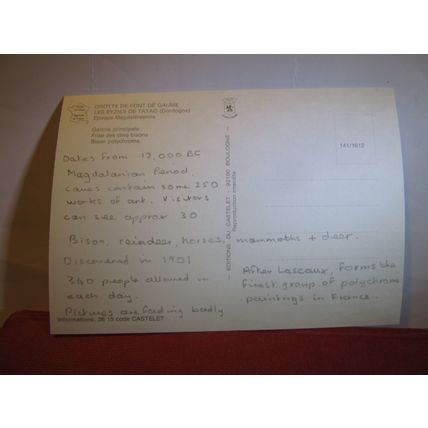 GROTTE DE FONT DE GAUME
LES EYZIES DE TAYAC (Dordogne)
Epoque Magdalénienne
Galerie principale
Frise des cinq bisons
Bison polychrome.
Dates from 12,000 BC
Magdalanian Period.
caves contain some 250
works of art. Visitors
can see approx 30
Bison, reindeer, horses, mammoths + deer.
Discovered in 1901
340 people allowed in
each day.
Pictures are fading badly
Informations: 36 15 code CASTELET
EDITIONS DU CASTELET - 92100 BOULOGNE -
Reproduction interdite
141/1612
After Lascaux, forms the
finest group of polychrome
paintings in France.